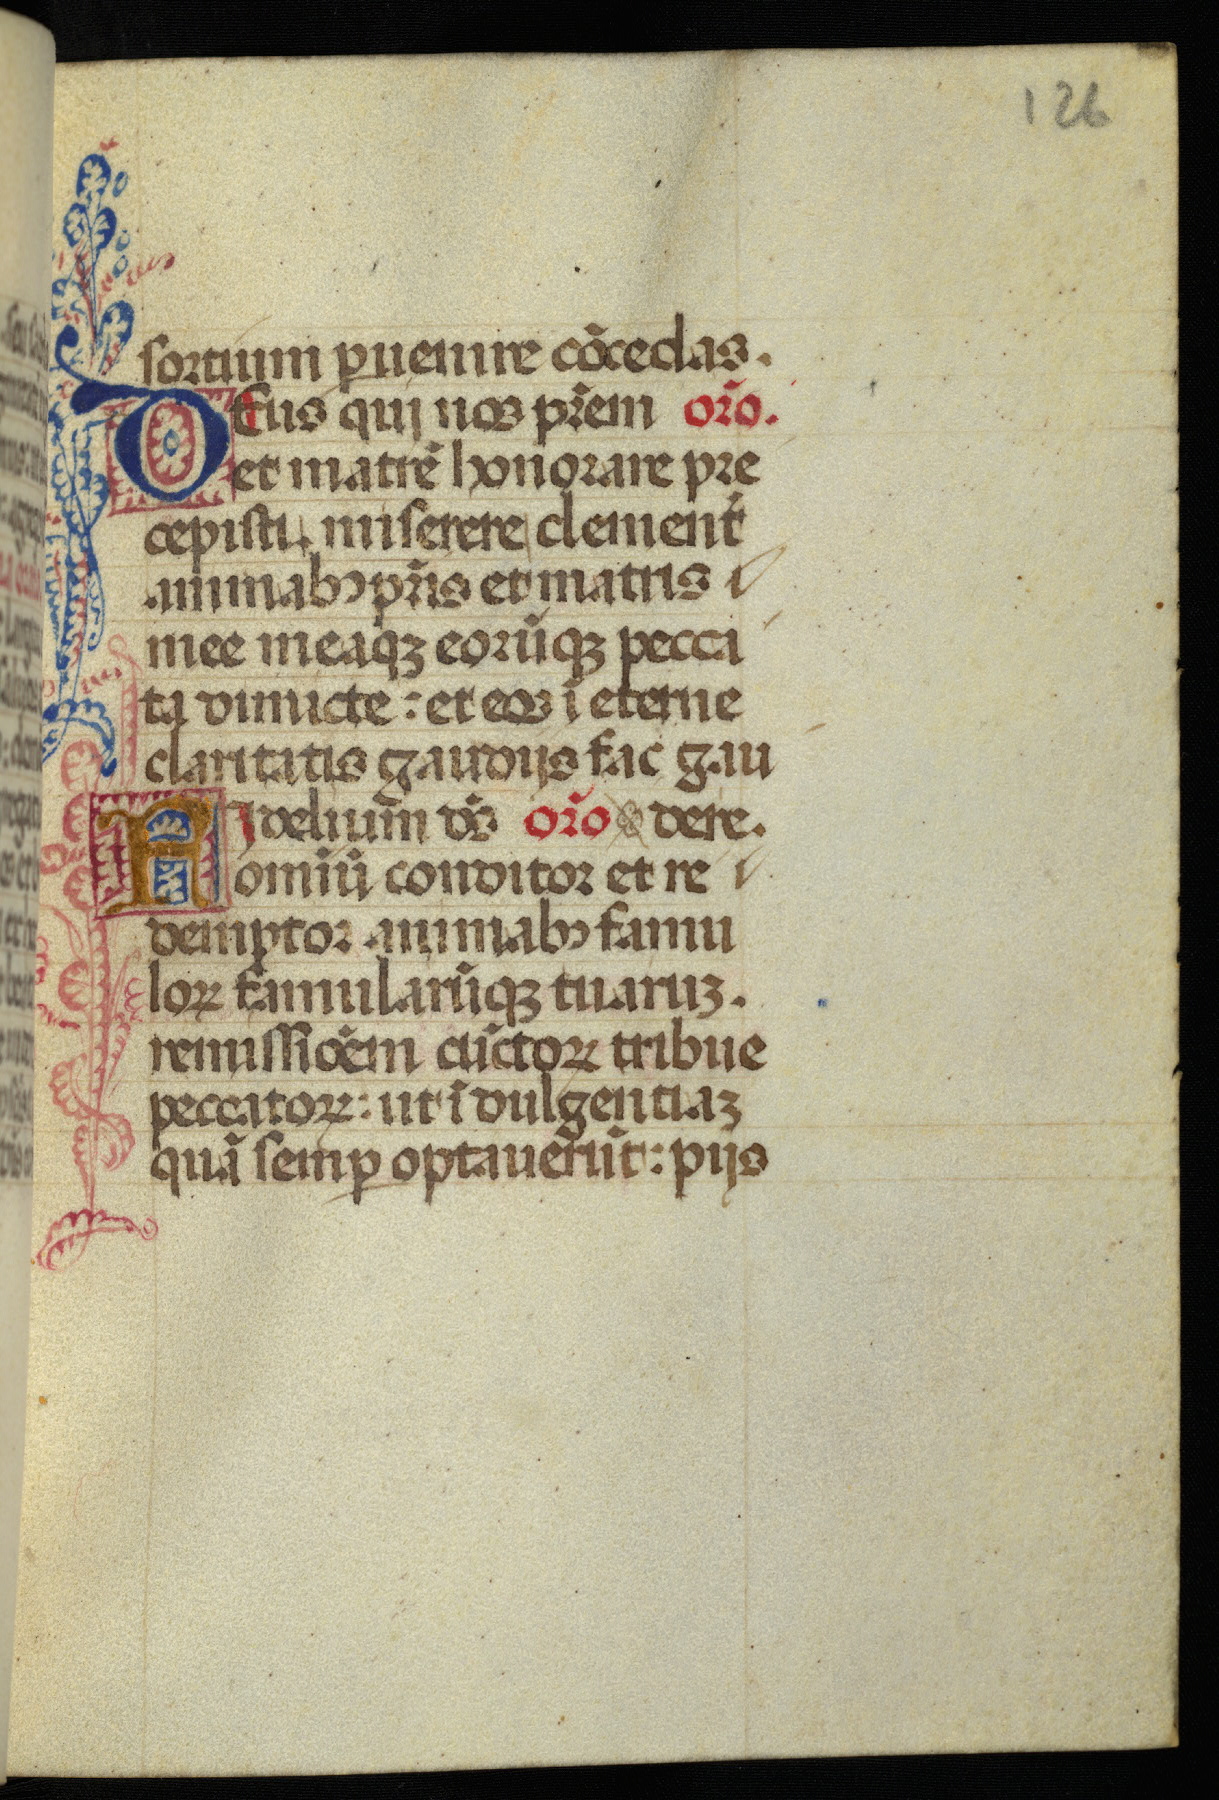 126
sortium ꝑuenire cōcedas.
DEus qui nos pr̄em or̄o.
et matrē honorare pre
cepisti miserere clement̄
animabꝰ pr̄is et matris
mee meaqꝫ eorūqꝫ pecca
ta dimicte: et eoꝝ ī eterne
claritatis gaudijs fac gau
FIdelium ds̄ or̄o dere.
omiū conditor et re
demptor animabꝰ famu
loꝝ famularūqꝫ tuaruꝫ.
remissiōem cūctoꝝ tribue
peccatoꝝ: ut īdulgentiaꝫ
quā semꝑ optauerūt: pijs